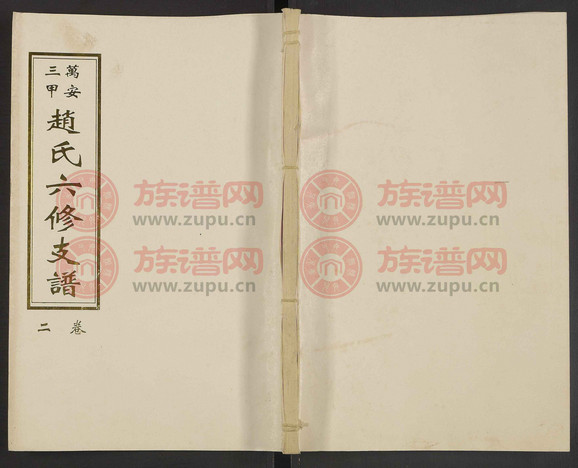 萬安
三甲
趙氏六修支譜
卷二
族谱网
www.zupu.cn
族谱网
www.zupu.cn
族谱网
www.zupu.cn
族谱网
www.zupu.cn